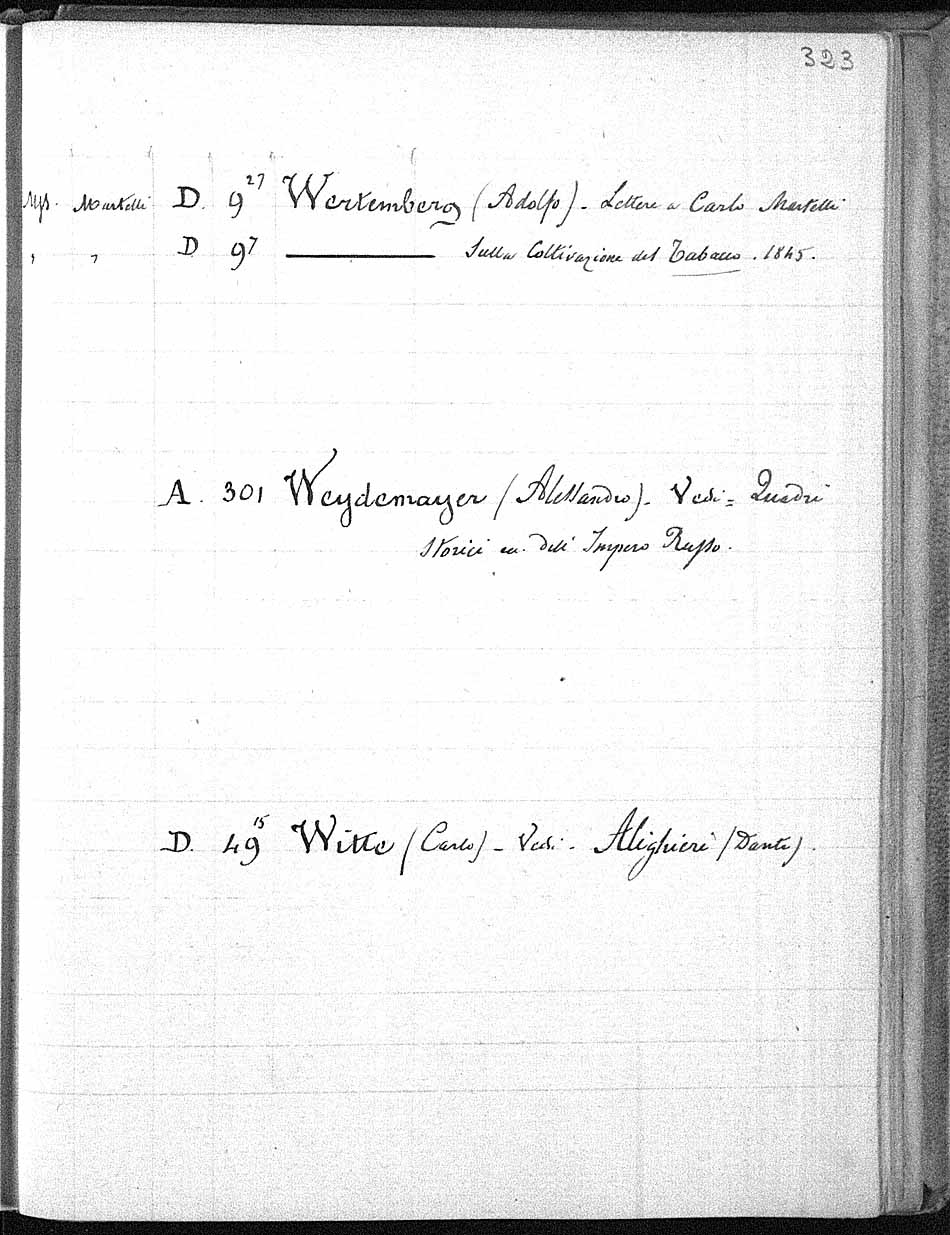 323
Mss. Martelli D. 9 27 Wertemberg (Adolfo) - Lettere a Carlo Martelli
" " D 9 7 ——— Sulla Coltivazione del Tabacco. 1845.
A. 301 Weydemayer (Alessandro) - Vedi = Quadri
Storici ec. dell' Impero Russo.
D. 49 15 Witte (Carlo) - Vedi - Alighieri (Dante).